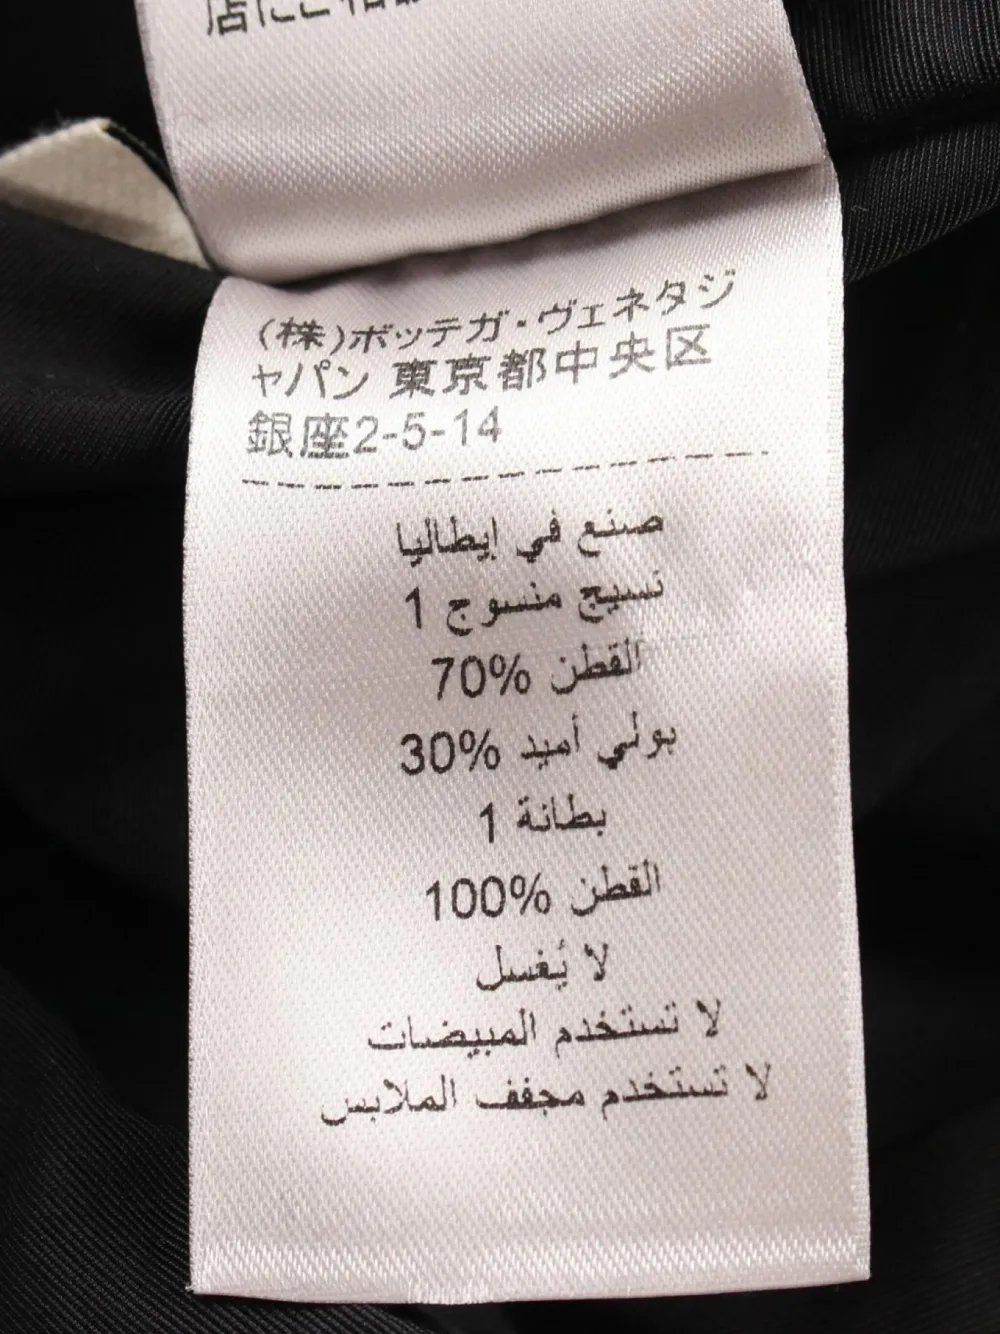 店にご相談
(株)ボッテガ・ヴェネタジ
ャパン 東京都中央区
銀座2-5-14
صنع في إيطاليا
نسيج منسوج 1
القطن 70%
بولي أميد 30%
بطانة 1
القطن 100%
لا يُغسل
لا تستخدم المبيضات
لا تستخدم مجفف الملابس